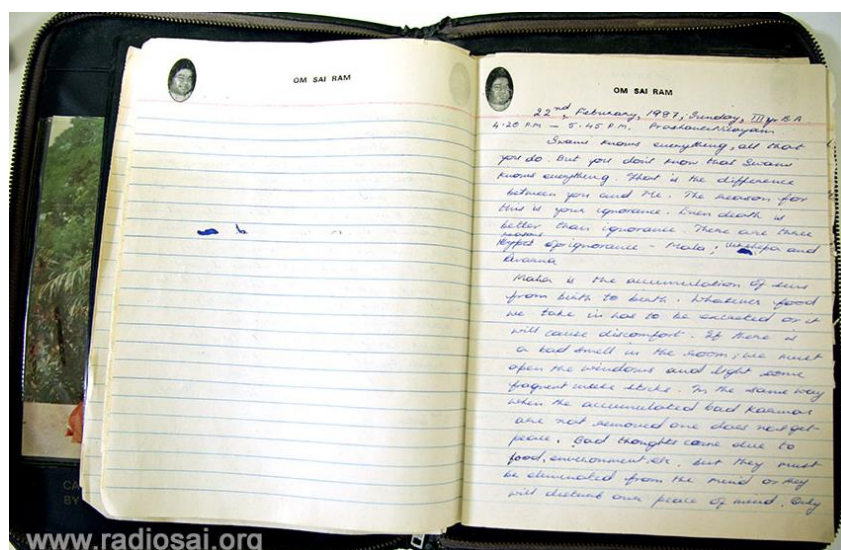 OM SAI RAM
OM SAI RAM
22nd, Feburary, 1987, Sunday, III yr B.A
4.20 P.M — 5.45 P.M. Prashanthi Nilayam
Swami knows everything, all that
you do. But you don't know that Swami
knows everything. That is the difference
between you and Me. The reason for
this is your ignorance. Even death is
better than ignorance. There are three
reasons
for ignorance - Mala, and
Avarna
Mala is the accumulation of sins
from birth to birth. Whatever food
we take in has to be excreted or it
will cause discomfort. If there is
a bad smell in the room, we must
open the windows and light some
fragrent sticks. In the same way
when the accumulated bad Karmas
are not removed one does not get
peace. Bad thoughts come due to
food, environment etc. but they must
be eliminated from the mind or they
will disturb our peace of mind. Only
CA
BY
www.radiosai.org